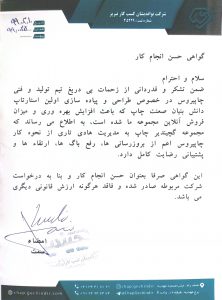 شرکت نواندیشان گشت کار تبریز
گواهی حسن انجام کار
سلام و احترام
ضمن تشکر و قدردانی از زحمات بی دریغ تیم تولید و فنی
چاپیروس در خصوص طراحی و پیاده سازی اولین استارتاپ
دانش بنیان صنعت چاپ که باعث افزایش بهره وری و میزان
فروش آنلاین مجموعه ما شده است، به اطلاع می رساند که
مجموعه گچیندیر چاپ به مدیریت هادی تاری از نحوه کار
چاپیروس اعم از بروزرسانی ها، رفع باگ ها، ارتقاء ها و
پشتیبانی رضایت کامل دارد.
این گواهی صرفا بعنوان حسن انجام کار و بنا به درخواست
شرکت مربوطه صادر شده و فاقد هرگونه ارزش قانونی دیگری
می باشد.
امضاء